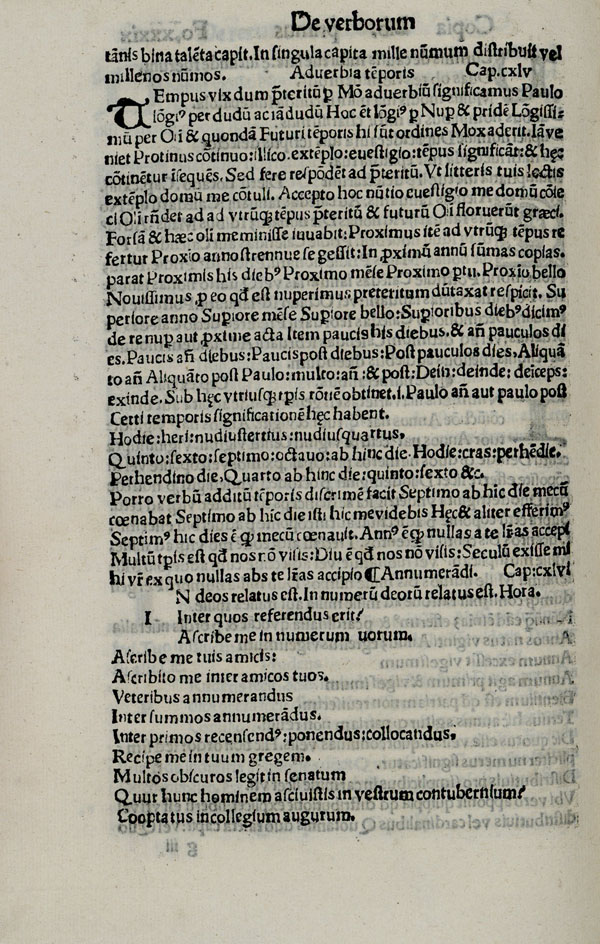 De verborum
tãnis bina talẽta capit. In singula capita mille nũmum distribuit vel
millenos nũmos. Aduerbia tẽporis Cap.cxlv
TEmpus vix dum p̃teritũ p Mõ aduerbiũ significamus Paulo
lõgiꝰ per dudũ ac iãdudũ Hoc ẽt lõgiꝰ p Nup & pridẽ Lõgissi⸗
mũ per Oli & quondã Futuri tẽporis hi sũt ordines Mox aderit. Iã ve
niet Protinus cõtinuo: illico. extẽplo: euestigio: tẽpus significãt: & hęc
cõtinẽtur iseques. Sed fere respõdẽt ad p̃teritũ. Vt litteris tuis lectis
extẽplo domũ me cõtuli. Accepto hoc nũtio euestigio me domũ cõie
ci Oli rñdet ad ad vtrũqꝫ tẽpus p̃teritũ & futurũ Oli floruerũt gręci.
Forsã & hæc oli meminisse iuuabit: Proximus itẽ ad vtrũqꝫ tẽpus re
fertur Proxio anno strennue se gessit: In pximũ annũ sũmas copias.
parat Proximis his diebꝰ Proximo mẽse Proximo ptu. Proxio bello
Nouissimus p eo qđ est nuperimus preteritum dũtaxat respicit. Su
periore anno Supiore mẽse Supiore bello: Supioribus diebꝰ dicimꝰ
de re nup aut pxime acta Item paucis his diebus. & añ pauculos di
es. Paucis añ diebus: Paucis post diebus: Post pauculos dies, Aliquã
to añ Aliquãto post Paulo: multo: añ: & post: Dein: deinde: deiceps:
exinde. Sub hęc vtriusqꝫ tpis rõnẽ obtinet. i. Paulo añ aut paulo post
Certi temporis significationẽ hęc habent.
Hodie: heri: nudiustertius: nudiusquartus.
Quinto: sexto: septimo: octauo: ab hinc die. Hodie: cras: perhẽdie.
Perhendino die, Quarto ab hinc die: quinto: sexto &c.
Porro verbũ additũ tẽporis discrimẽ facit Septimo ab hic die mecũ
cœnabat Septimo ab hic die isti hic me videbis Hęc & aliter efferimꝰ
Septimꝰ hic dies ẽ qꝫ mecũ cœnauit. Annꝰ ẽ qꝫ nullas a te lr̃as accepi
Multũ tpis est qđ nos nõ visis: Diu ẽ qđ nos nõ visis: Seculũ exisse mi
hi vr̃ ex quo nullas abs te lr̃as accipio ¶ Annumerãdi. Cap:cxlvi
IN deos relatus est. In numerũ deorũ relatus est. Hora.
Inter quos referendus erit?
Ascribe me in numerum uotum.
Ascribe me tuis amicis:
Ascribito me inter amicos tuos.
Veteribus annumerandus
Inter summos annumerãdus.
Inter primos recensendꝰ: ponendus: collocandus.
Recipe me in tuum gregem.
Multos obscuros legit in senatum
Quur hunc hominem asciuistis in vestrum contubernium?
Cooptatus in collegium augurum.